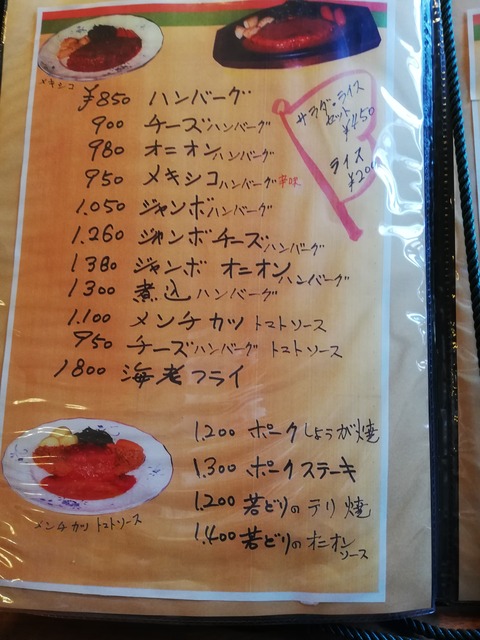 メキシコ
¥850 ハンバーグ
900 チーズハンバーグ
980 オニオンハンバーグ
950 メキシコハンバーグ 辛口
1.050 ジャンボハンバーグ
1.260 ジャンボチーズハンバーグ
1380 ジャンボ オニオンハンバーグ
1300 煮込ハンバーグ
1.100 メンチカツ トマトソース
950 チーズハンバーグ トマトソース
1800 海老フライ
サラダ・ライス
セット
¥450
ライス
¥200
1.200 ポークしょうが焼
1.300 ポークステーキ
1.200 若どりのテリ焼
1.400 若どりのオニオン
ソース
メンチカツ トマトソース